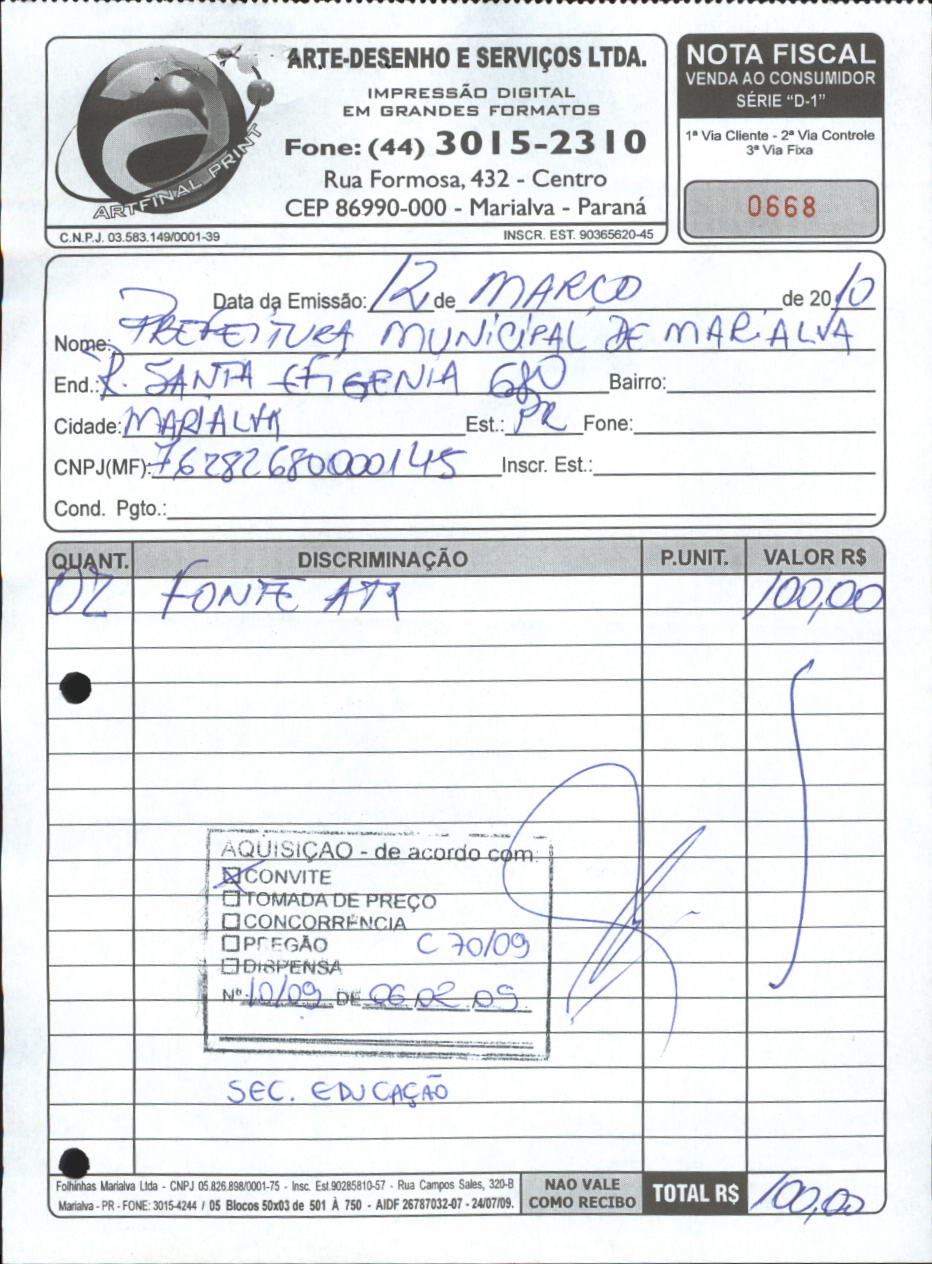 ARTFINAL PRINT
ARTE-DESENHO E SERVIÇOS LTDA.
IMPRESSÃO DIGITAL
EM GRANDES FORMATOS
Fone: (44) 3015-2310
Rua Formosa, 432 - Centro
CEP 86990-000 - Marialva - Paraná
C.N.P.J. 03.583.149/0001-39 INSCR. EST. 90365620-45
NOTA FISCAL
VENDA AO CONSUMIDOR
SÉRIE “D-1”
1ª Via Cliente - 2ª Via Controle
3ª Via Fixa
0668
Data da Emissão: 12 de MARCO de 2010
Nome: PREFEITURA MUNICIPAL DE MARIALVA
End.: R. SANTA EFIGENIA 680 Bairro:
Cidade: MARIALVA Est.: PR Fone:
CNPJ(MF): 76282680000145 Inscr. Est.:
Cond. Pgto.:
QUANT. DISCRIMINAÇÃO P.UNIT. VALOR R$
02 FONTE ATX 100,00
AQUISIÇAO - de acordo com:
CONVITE
TOMADA DE PREÇO
CONCORRENCIA
PREGÃO C 70/09
DISPENSA
Nº 10/09 DE 06 02 09
SEC. EDUCAÇÃO
Folhinhas Marialva Ltda - CNPJ 05.826.898/0001-75 - Insc. Est.90285810-57 - Rua Campos Sales, 320-B
Marialva - PR - FONE: 3015-4244 / 05 Blocos 50x03 de 501 À 750 - AIDF 26787032-07 - 24/07/09.
NAO VALE
COMO RECIBO
TOTAL R$ 100,00